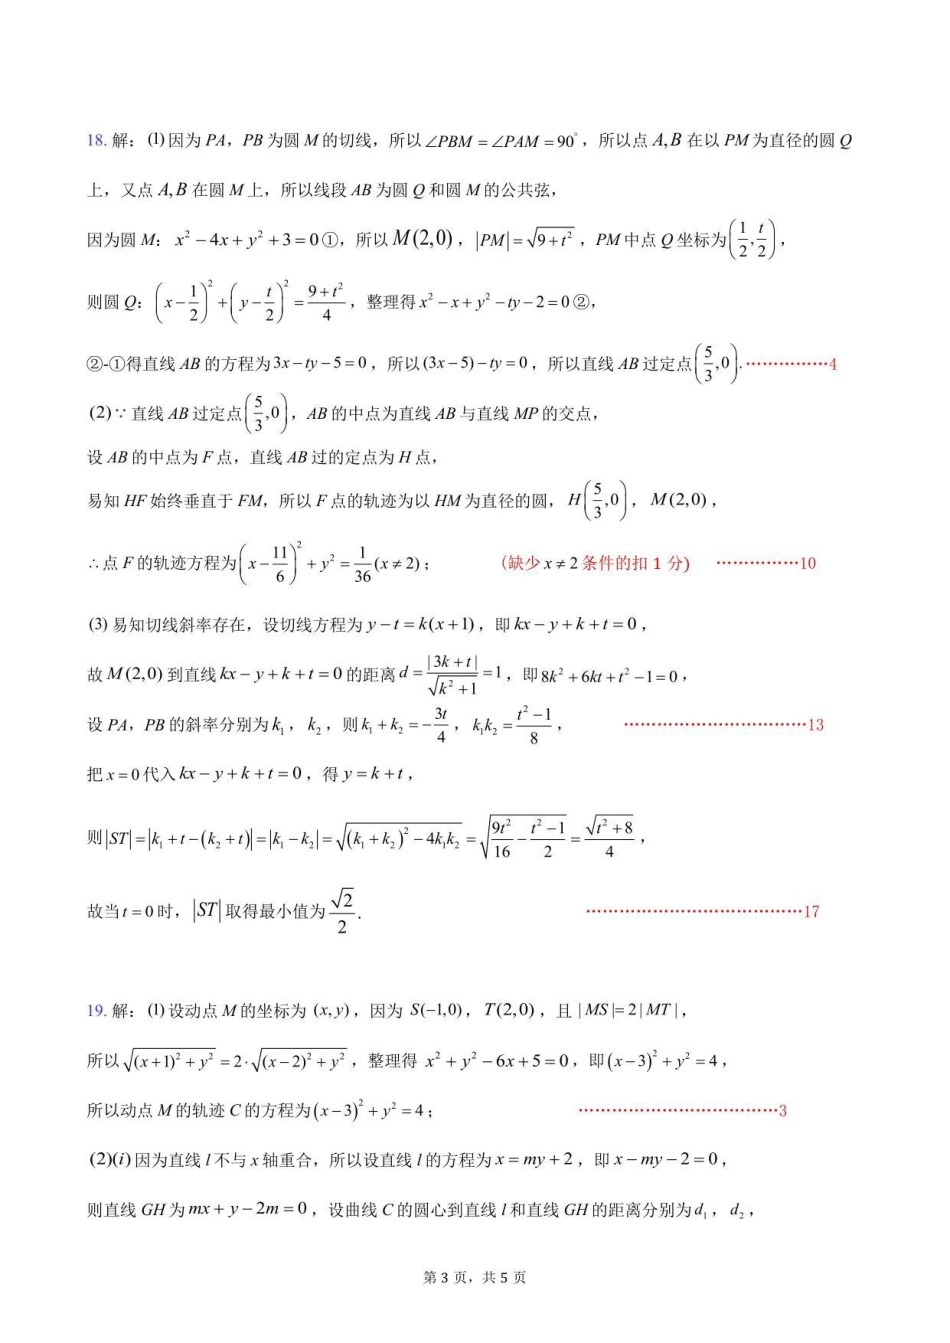 18. 解：(1) 因为 PA，PB 为圆 M 的切线，所以 ∠PBM = ∠PAM = 90°，所以点 A, B 在以 PM 为直径的圆 Q
上，又点 A, B 在圆 M 上，所以线段 AB 为圆 Q 和圆 M 的公共弦，
因为圆 M：x² − 4x + y² + 3 = 0①，所以 M(2,0)，|PM| = √(9+t²)，PM 中点 Q 坐标为(1/2, t/2)，
则圆 Q：(x − 1/2)² + (y − t/2)² = (9+t²)/4，整理得 x² − x + y² − ty − 2 = 0②，
②-①得直线 AB 的方程为 3x − ty − 5 = 0，所以 (3x − 5) − ty = 0，所以直线 AB 过定点(5/3, 0). ……………4
(2) ∵ 直线 AB 过定点(5/3, 0)，AB 的中点为直线 AB 与直线 MP 的交点，
设 AB 的中点为 F 点，直线 AB 过的定点为 H 点，
易知 HF 始终垂直于 FM，所以 F 点的轨迹为以 HM 为直径的圆，H(5/3, 0)，M(2,0)，
∴点 F 的轨迹方程为(x − 11/6)² + y² = 1/36 (x ≠ 2)； (缺少 x ≠ 2 条件的扣 1 分) ……………10
(3) 易知切线斜率存在，设切线方程为 y − t = k(x + 1)，即 kx − y + k + t = 0，
故 M(2,0) 到直线 kx − y + k + t = 0 的距离 d = |3k + t|/√(k² + 1) = 1，即 8k² + 6kt + t² − 1 = 0，
设 PA，PB 的斜率分别为 k₁，k₂，则 k₁ + k₂ = −3t/4，k₁k₂ = (t² − 1)/8， ……………………………13
把 x = 0 代入 kx − y + k + t = 0，得 y = k + t，
则 |ST| = |k₁ + t − (k₂ + t)| = |k₁ − k₂| = √((k₁ + k₂)² − 4k₁k₂) = √(9t²/16 − (t² − 1)/2) = √(t² + 8)/4，
故当 t = 0 时，|ST| 取得最小值为 √2/2. …………………………………17
19. 解：(1) 设动点 M 的坐标为 (x, y)，因为 S(−1,0)，T(2,0)，且 | MS |= 2 | MT |，
所以 √((x + 1)² + y²) = 2·√((x − 2)² + y²)，整理得 x² + y² − 6x + 5 = 0，即 (x − 3)² + y² = 4，
所以动点 M 的轨迹 C 的方程为 (x − 3)² + y² = 4； ………………………………3
(2)(i) 因为直线 l 不与 x 轴重合，所以设直线 l 的方程为 x = my + 2，即 x − my − 2 = 0，
则直线 GH 为 mx + y − 2m = 0，设曲线 C 的圆心到直线 l 和直线 GH 的距离分别为 d₁，d₂，
第 3 页，共 5 页